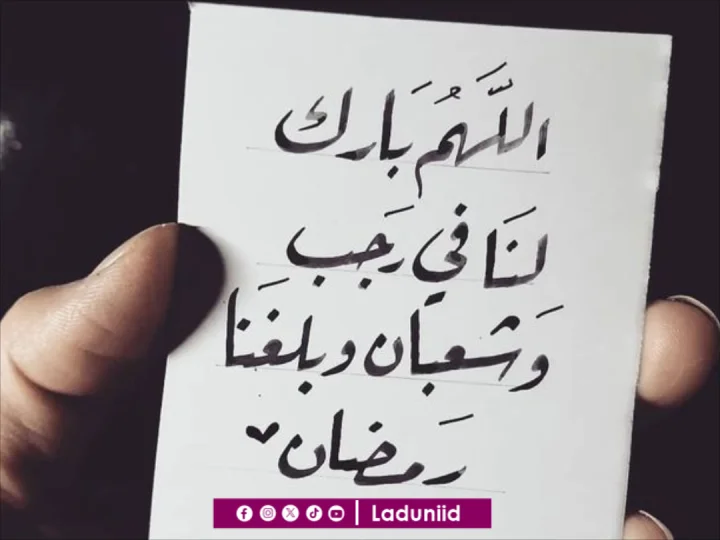 اللَّهُم بَارك
لنَا في رَجَب
وَشعبان وبلغنَا
رَمضان
Laduniid